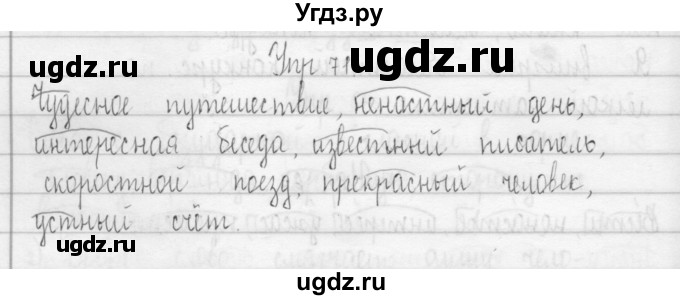 Угдз.ру
ugdz.ru ugdz.ru
Упр 71
Чудесное путешествие, ненастный день,
интересная беседа, известный писатель,
скоростной поезд, прекрасный человек,
устный счёт.
ugdz.ru ugdz.ru
ugdz.ru